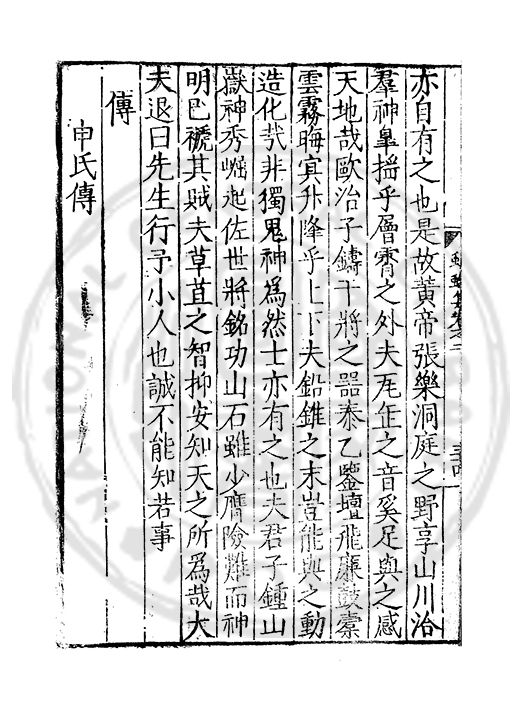 亦自有之也是故黄帝張樂洞庭之野享山川治
羣神臯搖乎層霄之外夫瓦缶之音奚足與之感
天地哉歐冶子鑄干將之器泰乙鑒壇飛廉鼓橐
雲霧晦冥升降乎上下夫鉛錐之末豈能與之動
造化哉非獨鬼神為然士亦有之也夫君子鍾山
嶽神秀崛起佐世將銘功山石雖少膺險難而神
明已褫其賊夫草苴之智抑安知天之所為哉大
夫退曰先生行予小人也誠不能知若事
傳
申氏傳
蠛蠓集卷之二